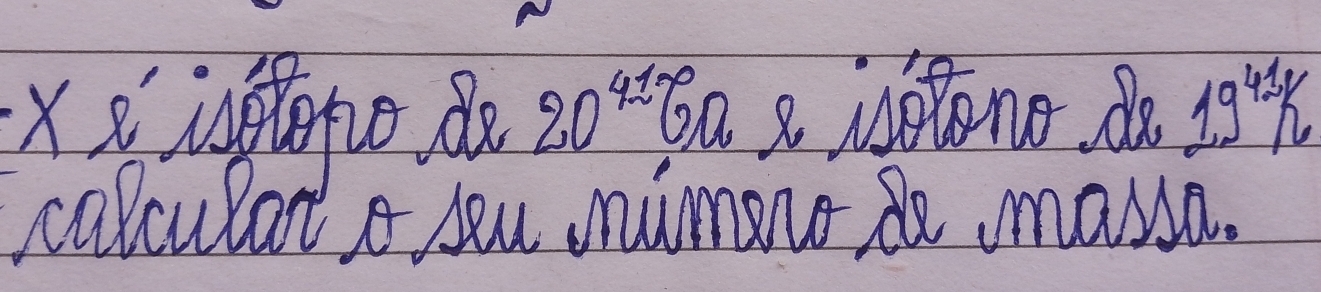 - X é isótopo de 20⁴¹Ca e isótono de 19⁴¹K
calcular o seu número de massa.